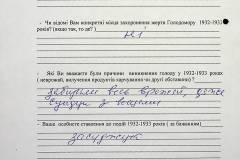 - Чи відомі Вам конкретні місця захоронення жертв Голодомору 1932-1933
років? (якщо так, то де?)
Ні
- Які Ви вважаєте були причини виникнення голоду у 1932-1933 роках
( неврожай, вилучення продуктів харчування чи другі обставини)
забирали весь врожай,
з
- Ваше особисте ставлення до подій 1932-1933 років ( за бажанням)
засуджую